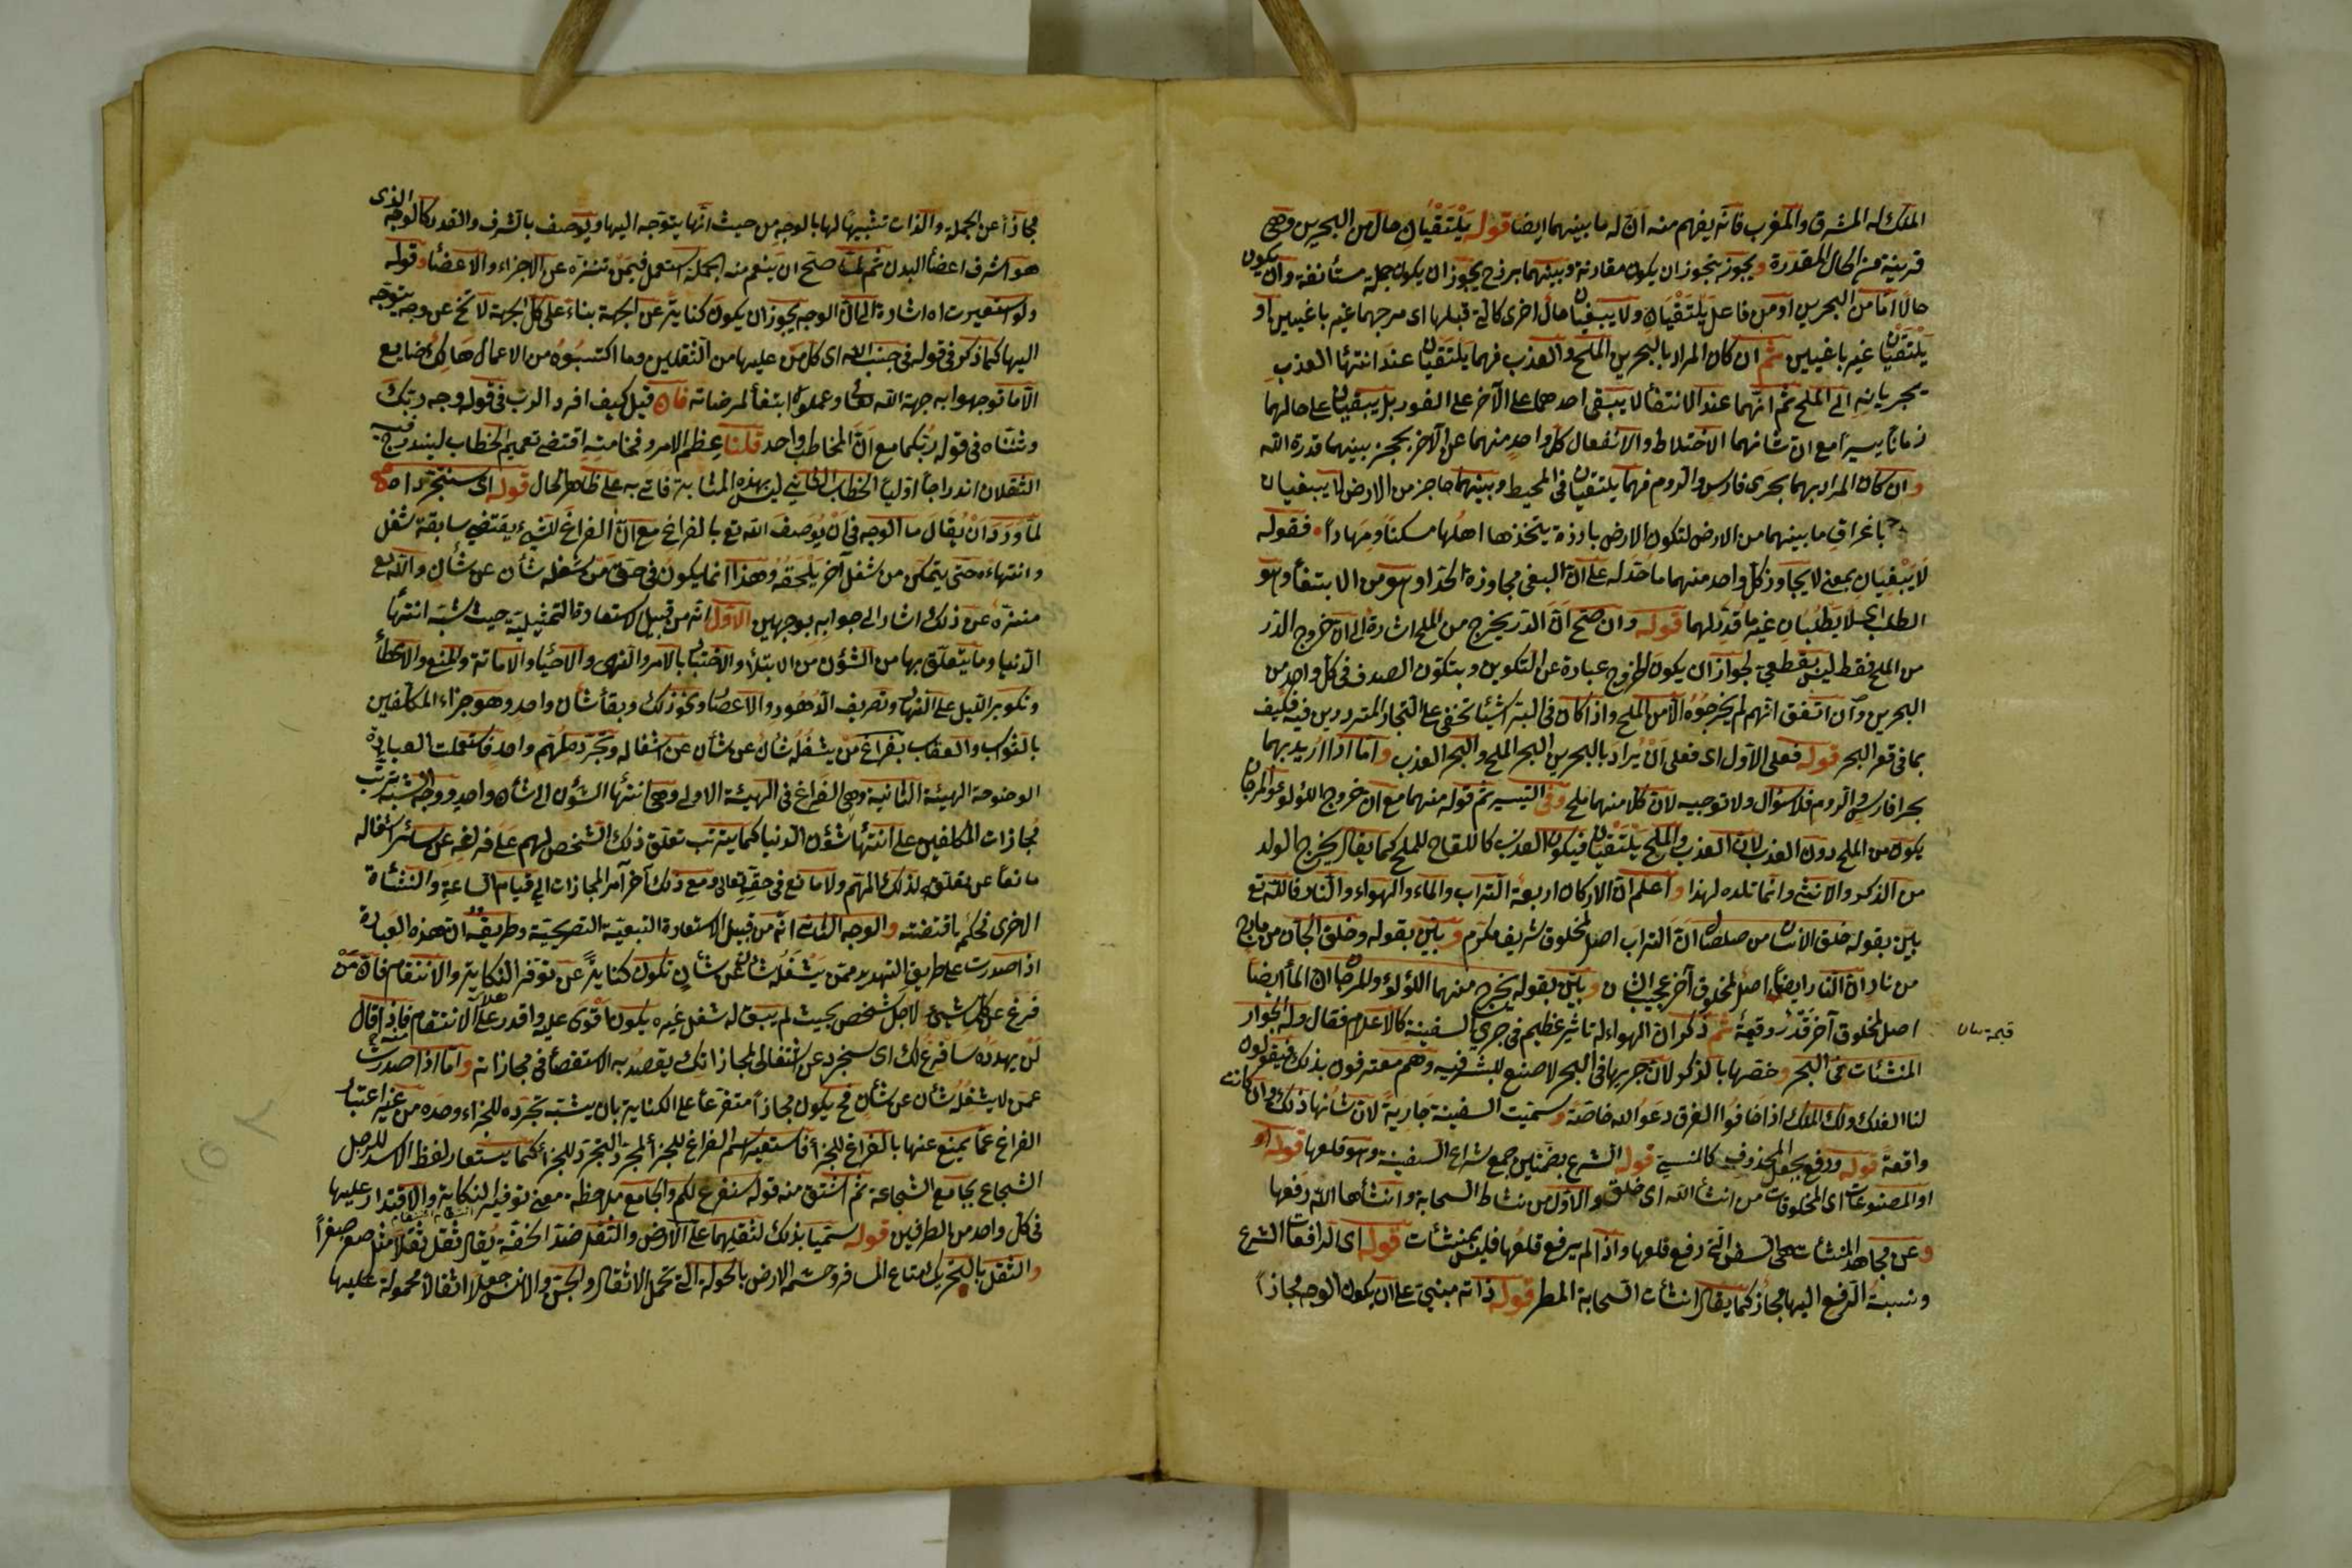 الملك له المشرق والمغرب فانه يفهم منه ان له ما بينهما ايضا قوله يلتقيان حال من البحرين وهى
قرينة من الحال المقدرة ويجوز يتجوز ان يكون مقارنة وبينهما برزخ يجوز ان يكون جملة مستأنفة وان يكون
حالا اما من البحرين او من فاعل يلتقيان ولا يبغيان حال اخرى كالتى قبلها اى مرجهما غير باغيين او
يلتقيان غير باغيين ثم ان كان المراد بالبحرين الملح والعذب فهما يلتقيان عند انتهاء العذب
بجريانه الى الملح ثم انهما عند الالتقاء لا يبقى احدهما على الآخر على الفور بل يبقيان على حالهما
زمانا يسيرا مع ان شانهما الاختلاط والانفعال كل واحد منهما عن الآخر بحجز بينهما قدرة الله
وان كان المراد بهما بحرى فارس والروم فهما يلتقيان فى المحيط وبينهما حاجز من الارض لا يبغيان
باغراق ما بينهما من الارض لتكون الارض بارزة يتخذها اهلها مسكنا ومهادا فقوله
لا يبغيان بمعنى لا يجاوز كل واحد منهما ما حد له على ان البغى مجاوزة الحد او هو من الابتغاء وهو
الطلب اى لا يطلبان غير ما قدر لهما قوله وان صح ان الدر يخرج من الملح اشارة الى ان خروج الدر
من الملح فقط ليس بقطعى لجواز ان يكون الخروج عبارة عن التكوين ويتكون الصدف فى كل واحد من
البحرين وان اتفق انهم لم يخرجوه الا من الملح واذا كان فى البر اشياء تخفى على التجار المترددين فيه فكيف
بما فى قعر البحر قوله فعلى الاول اى فعلى ان يراد بالبحرين البحر الملح والبحر العذب واما اذا اريد بهما
بحرا فارس والروم فلا سؤال ولا توجيه لان كلا منهما ملح وفى التيسير ثم قوله منهما مع ان خروج اللؤلؤ والمرجان
يكون من الملح دون العذب لان العذب والملح يلتقيان فيكون العذب كاللقاح للملح كما يقال يخرج الولد
من الذكر والانثى وانما تلده لهذا واعلم ان الاركان اربعة التراب والماء والهواء والنار فالله تع
بين بقوله خلق الانسان من صلصال ان التراب اصل لمخلوق شريف مكرم وبين بقوله وخلق الجان من مارج
من نار ان النار ايضا اصل لمخلوق آخر عجيب الشان وبين بقوله يخرج منهما اللؤلؤ والمرجان ان الماء ايضا
اصل لمخلوق آخر قدر وقيمة ثم ذكر ان الهواء له تاثير عظيم فى جرى السفينة كالاعلام فقال وله الجوار
المنشئات فى البحر وخصها بالذكر لان جريها فى البحر لا صنع للبشر فيه وهم معترفون بذلك فيقولون
لنا الفلك ولك الملك اذا خافوا الغرق دعوا الله خاصة وسميت السفينة جارية لان شانها ذلك وان كانت
واقعة قوله ورفع بجعل المحذوف كالمنسى قوله الشرع بضمتين جمع شراع السفينة وهو قلعها قوله او
او المصنوعات اى المخلوقات من انشأ الله اى خلق والاول من نشاط السحابة وانشأها الله رفعها
وعن مجاهد المنشآت هى السفن التى رفع قلعها واذا لم يرفع قلعها فليس بمنشئات قوله اى الرافعات الشرع
ونسبة الرفع اليها مجاز كما يقال انشأت السحابة المطر قوله ذاته مبنى على ان يكون الوجه مجازا
مجازا عن الجملة والذات تشبيها لها بالوجه من حيث انها يتوجه اليها ويوصف بالشرف والقدر كالوجه الذى
هو اشرف اعضاء البدن ثم لما صح ان يفهم منه الجملة استعمل فيمن تنزه عن الاجزاء والاعضاء وقوله
ولو استقريت اه اشارة الى ان الوجه يجوز ان يكون كناية عن الجهة بناء على كل الجهة لا تخ عن وجه يتوجه
اليها كما ذكر فى قوله فى جنب الله اى كل من عليها من الثقلين وما اكتسبوه من الاعمال هالك ضايع
الا ما توجهوا به جهة الله تعالى وعملوه ابتغاء لمرضاته فان قيل كيف افرد الرب فى قوله وجه ربك
وثناه فى قوله ربكما مع ان المخاطب واحد قلنا عظم الامر وفخامته اقتضى تعميم الخطاب ليندرج فيه
الثقلان اندراجا اوليا الخطاب الثانى ليس بهذه المثابة فاتى به على ظاهر الحال قوله اى سنتجرد اه
لما ورد ان يقال ما الوجه فى ان يوصف الله تع بالفراغ مع ان الفراغ للشىء يقتضى سابقة شغل
وانتهاءه حتى يتمكن من شغل آخر يلحقه وهذا انما يكون فى حق من شغله شان عن شان والله تع
منزه عن ذلك اشار الى جوابه بوجهين الاول انه من قبيل الاستعارة التمثيلية حيث شبه انتهاء
الدنيا وما يتعلق بها من الشؤن من الابتلاء والاختبار بالامر والنهى والاحياء والاماتة والمنع والاعطاء
وتكوير الليل على النهار وتصريف الدهور والاعصار ونحو ذلك وبقاء شان واحد وهو جزاء المكلفين
بالثواب والعقاب بفراغ من يشغله شان عن شان عن اشغاله وتجرد مهم واحد فاستعملت العبارة
الموضوعة الهيئة الثانية وهى الفراغ فى الهيئة الاولى وهى انتهاء الشؤن الى شان واحد ووجه الشبه ترتب
مجازات المكلفين على انتهاء شؤن الدنيا كما يترتب تعلق ذلك الشخص لهم على فراغه عن سائر اشغاله
مانعا عن تعلقه لذلك المهم ولا مانع فى حقه تعالى ومع ذلك آخر امر المجازات الى قيام الساعة والنشأة
الاخرى لحكم اقتضته والوجه الثانى انه من قبيل الاستعارة التبعية التصريحية وطريقه ان هذه العبارة
اذا صدرت على طريق التهديد ممن يشغله شان عن شان تكون كناية عن توفر النكاية والانتقام فان من
فرغ عن كل شىء لاجل شخص بحيث لم يبق له شغل غيره يكون اقوى عليه واقدر على الانتقام منه فاذا قال
لمن يهدده سافرغ لك اى ساتجرد عن اشغالى لمجازاتك يقصد به الاستقصاء فى مجازاته واما اذا صدرت
عمن لا يشغله شان عن شان فح يكون مجازا متفرعا على الكناية بان يشبه تجرده للجزاء وحده من غير اعتبار
الفراغ عما يمنع عنها بالفراغ للجزاء فاستعير اسم الفراغ للجزاء لمجرد التجرد للجزاء كما يستعار لفظ الاسد للرجل
الشجاع بجامع الشجاعة ثم اشتق منه قوله سنفرغ لكم والجامع ملاحظة معنى توفير النكاية والاقتدار عليها
فى كل واحد من الطرفين قوله سميا بذلك لثقلهما على الارض والثقل ضد الخفة يقال ثقل ثقلا مثل صغر صغرا
والثقل بالتحريك متاع المسافر وحشمه الارض بالحمولة التى تحمل الاثقال والجن والانس جعلا اثقالا محمولة عليها